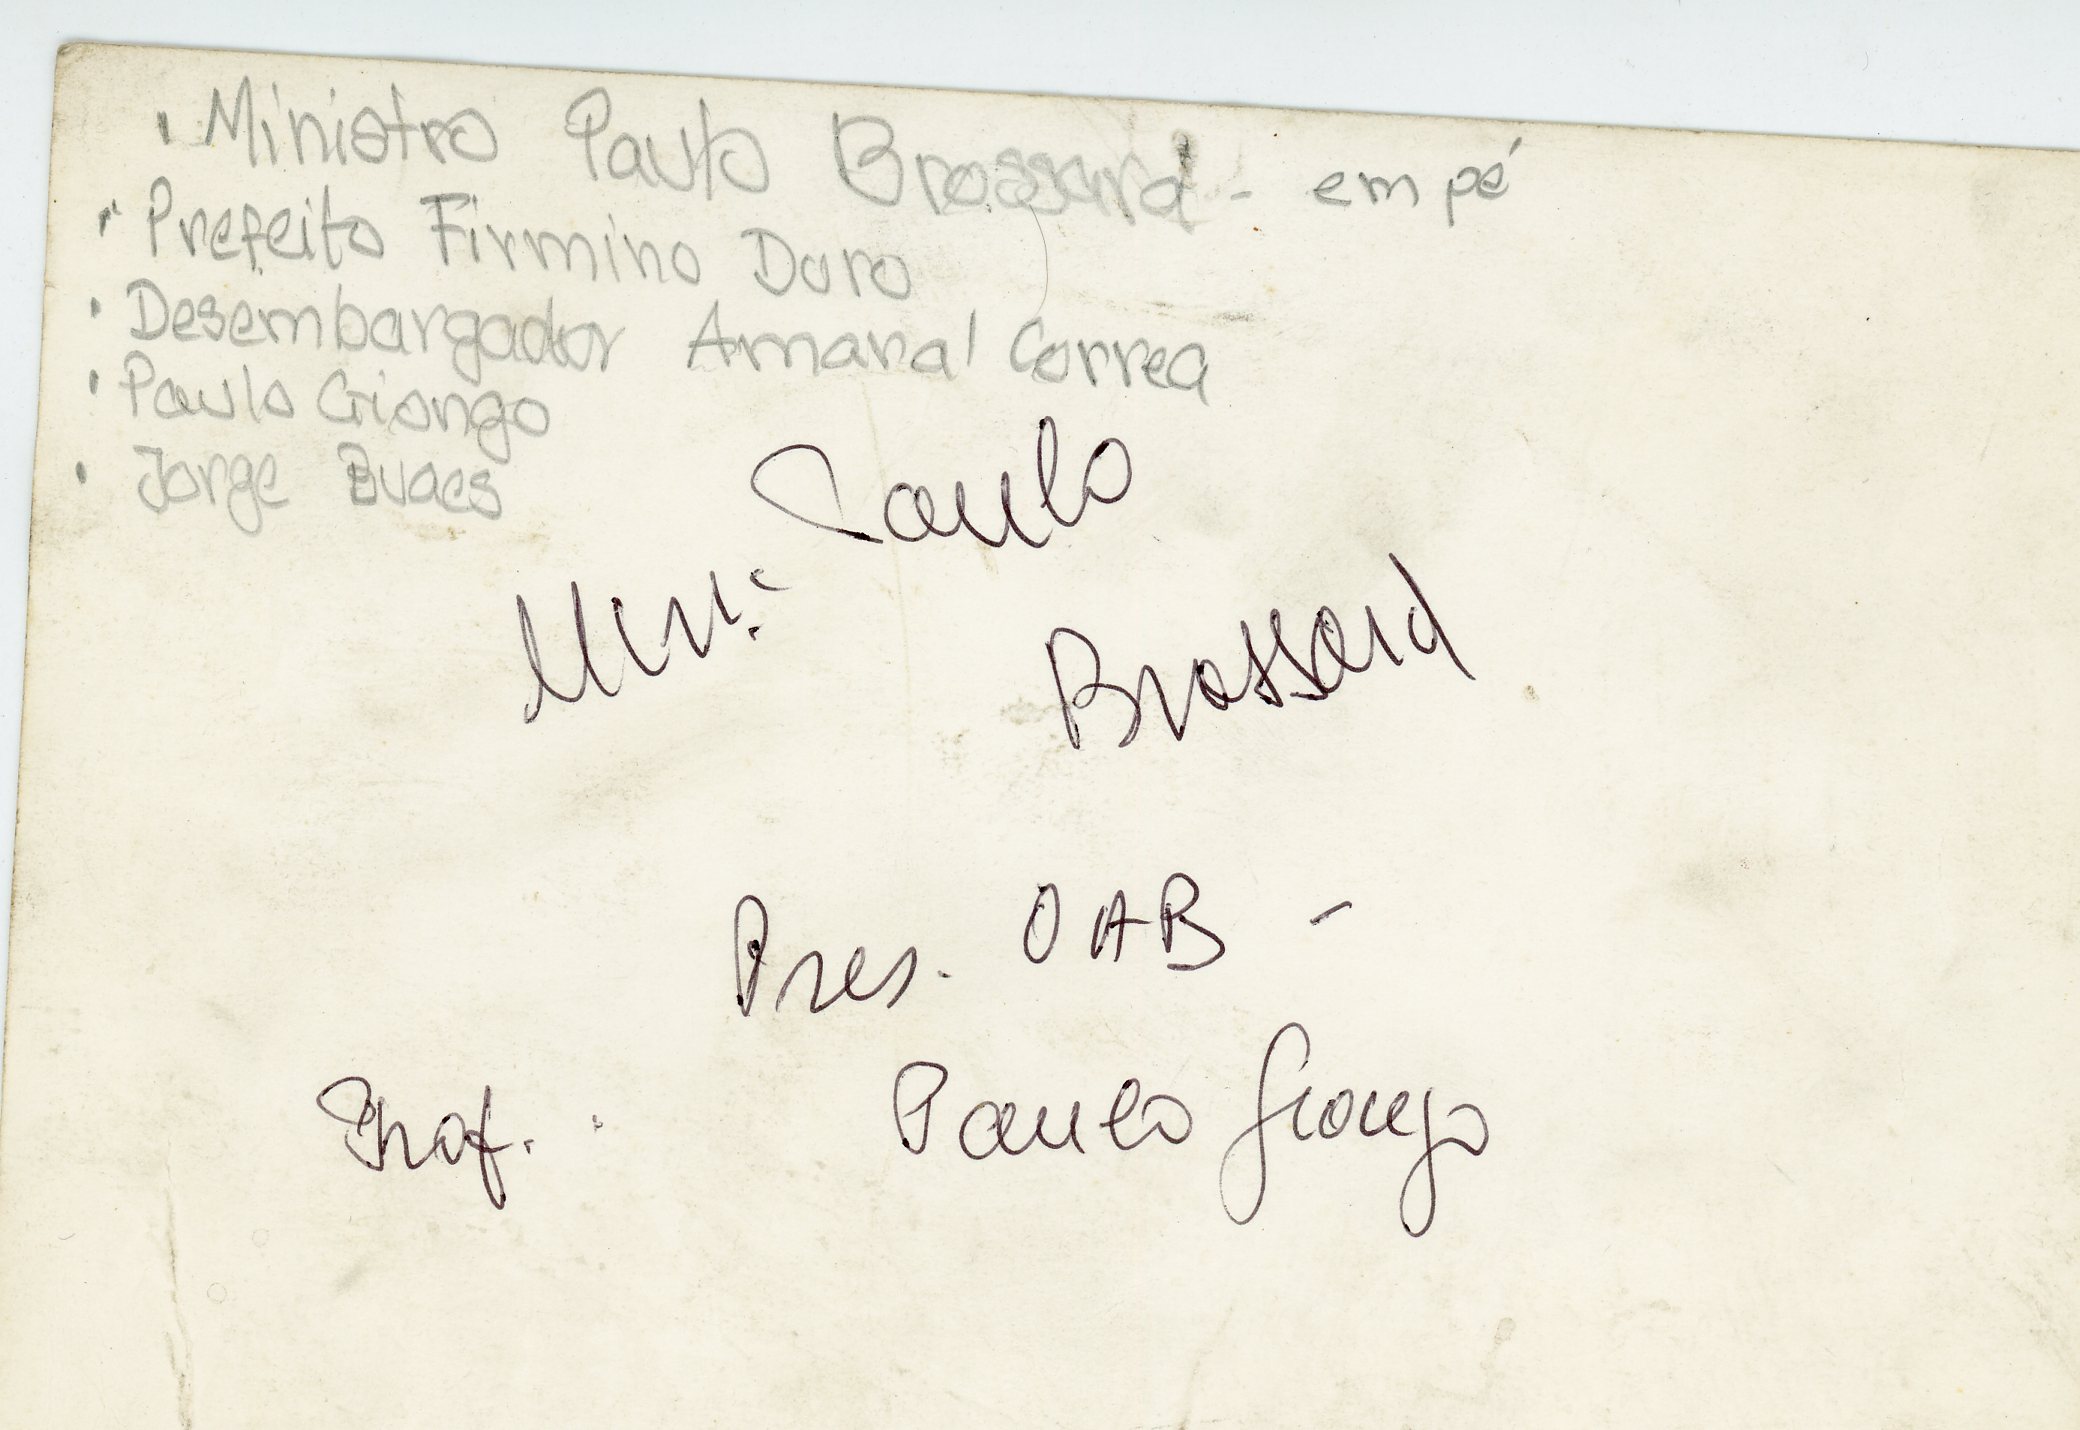 · Ministro Paulo Brossard - em pé
· Prefeito Firmino Duro
· Desembargador Amaral Correa
· Paulo Giongo
· Jorge Buaes
Min. Paulo
Brossard
Pres. OAB -
Prof. . Paulo Giongo